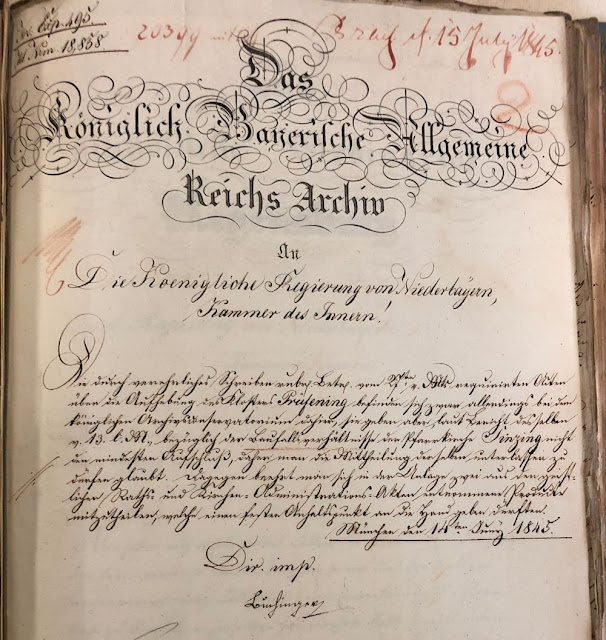 Exp. 495
ad Num 18,858
20399
15 July 1845.
Das
Königlich Bayerische Allgemeine
Reichs Archiv
An
Die Koenigliche Regierung von Niederbayern,
Kammer des Innern!
Die durch verehrliches Schreiben rubr. Betr. vom 27ten v. Mts requirirten Akten
über die Aufhebung des Klosters Prüfening befinden sich zwar allerdings bei dem
königlichen Archivsconservatorium dahier, sie geben aber, laut Bericht desselben
v. 13. l. Mts, bezüglich der Baufallsverhältnisse der Pfarrkirche Sinzing nicht
den mindesten Aufschluß, daher man die Mittheilung derselben unterlassen zu
dürfen glaubt. Dagegen beehrt man sich in der Anlage zwei aus den geist-
lichen Raths- und Kirchen-Administrations-Akten entnommene Produkte
mitzutheilen, welche einen festen Anhaltspunkt an die Hand geben dürften.
München den 14ten Juny 1845.
Dir. imp.
Buchinger